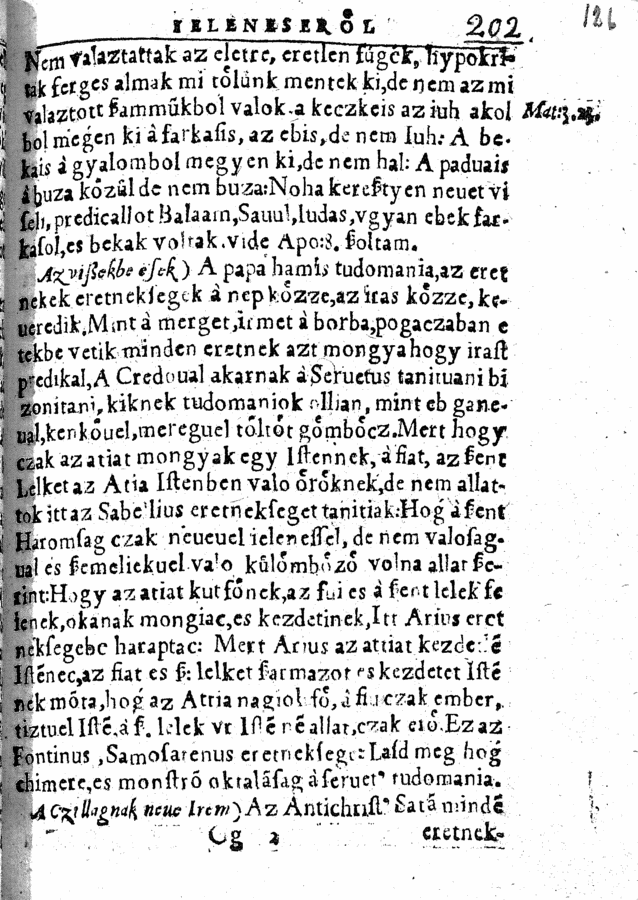 IELENESERŐL 202. 126
Nem valaztattak az eletre, eretlen fúgek, hypokri-
tak ferges almak mi tőlünk mentek ki, de nem az mi
valaztott ßammükbol valok. a keczkeis az iuh akol Mat:3. 25.
bol megen ki à farkasis, az ebis, de nem Iuh: A be-
kais à gyalombol megyen ki, de nem hal: A paduais
à buza kőzűl de nem buza: Noha kereßtyen neuet vi
seli, predicallot Balaam, Sauul, Iudas, vgyan ebek far-
kasol, es bekak voltak. vide Apo:8. ßoltam.
Az vißekbe esek) A papa hamis tudomania, az eret
nekek eretneksegek à nep kőzze, az iras kőzze, ke-
ueredik, Mint à merget, irmet à borba, pogaczaban e
tekbe vetik minden eretnek azt mongya hogy irast
predikal, A Credoual akarnak à Seruetus tanituani bi
zonitani, kiknek tudomaniok ollian, mint eb gane-
ual, kenkőuel, mereguel tőltőt gőmbőcz. Mert hogy
czak az atiat mongyak egy Istennek, à fiat, az ßent
Lelket az Atia Istenben valo őrőknek, de nem allat-
tok itt az Sabellius eretnekseget tanitiak: Hoǵ à ßent
Haromsag czak neueuel ielenessel, de nem valosag-
ual es ßemeliekuel valo kűlőmbőző volna allat ße-
rint: Hogy az atiat kutfőnek, az fui es à ßent lelek fe
lenek, okanak mongiac, es kezdetinek, Itt Arius eret
neksegebe haraptac: Mert Arius az attiat kezdetlē
Istēnec, az fiat es ß: lelket ßarmazot es kezdetet Istē
nek mōta, hoǵ az Atria nagiol fő, à fiu czak ember,
tiztuel Istē, à ß. lelek vr Istē nē allat, czak erő. Ez az
Fontinus, Samosatenus eretneksege: Lasd meg hoǵ
chimere, es monstrō oktalāsag à seruet’ tudomania.
A Czillagnak neue Irem) Az Antichrist’ Satā mindē
Cg 2 eretnek-